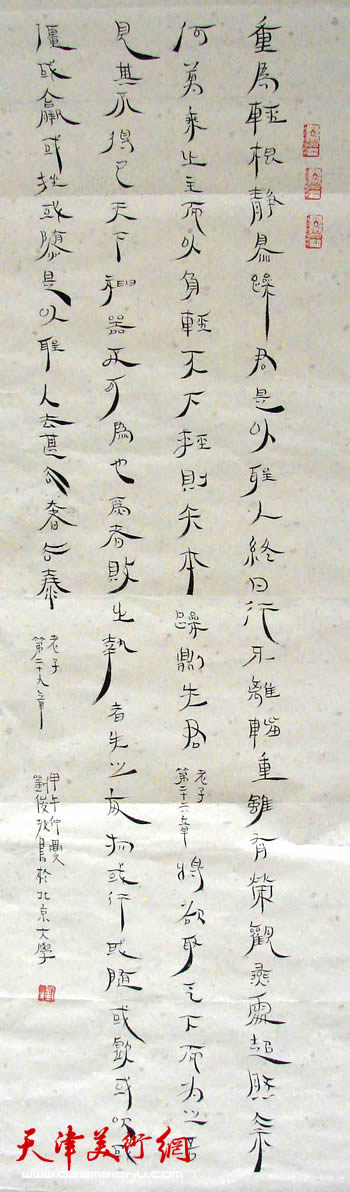 重為輕根靜為躁君是以聖人終日行不離輜重雖有榮觀燕處超然奈
何萬乘之主而以身輕天下輕則失本躁則失君 老子第二十六章 將欲取天下而為之吾
見其不得已天下神器不可為也為者敗之執者失之故物或行或隨或歔或吹或
強或羸或挫或隳是以聖人去甚去奢去泰
老子
第二十九章
甲午仲夏
劉俊坡書於北京大學
天津美術網